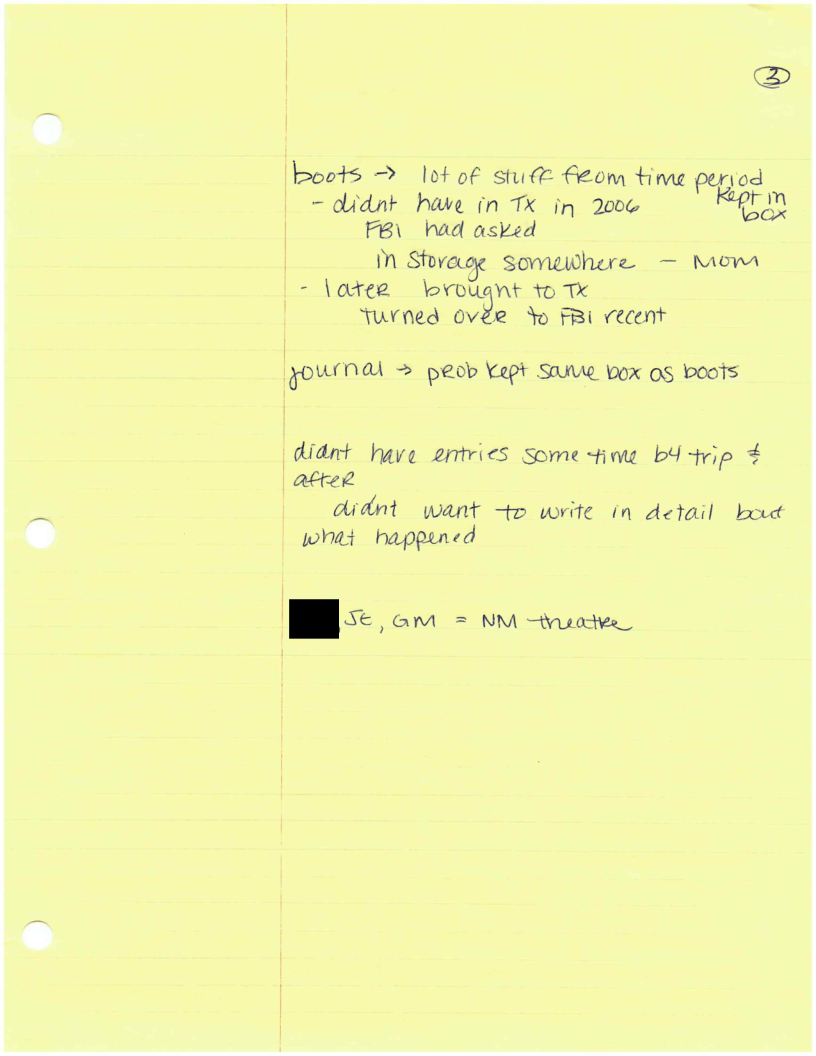 3
boots → lot of stuff from time period
kept in
box
- didnt have in TX in 2006
FBI had asked
in storage somewhere - MOM
- later brought to TX
turned over to FBI recent
journal → prob kept same box as boots
didnt have entries some time b4 trip &
after
didnt want to write in detail bout
what happened
, JE, GM = NM theatre